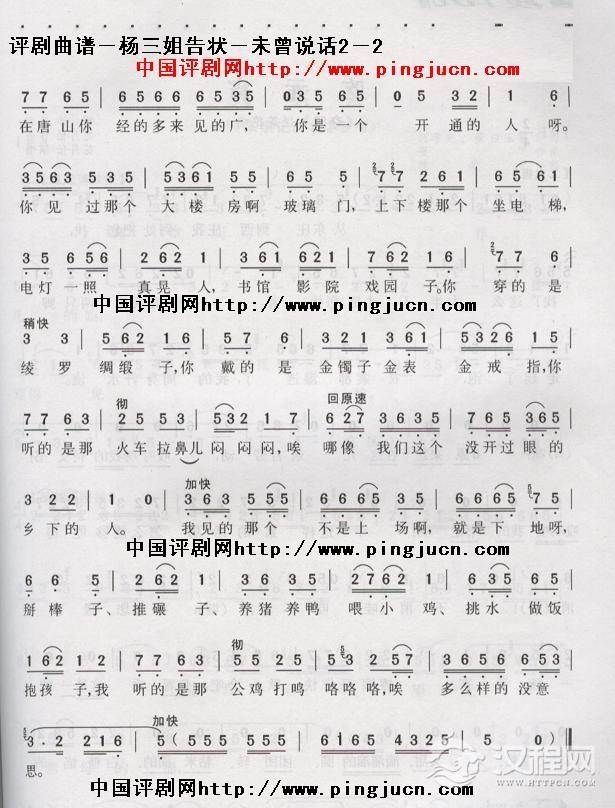 评剧曲谱－杨三姐告状－未曾说话2－2
中国评剧网http://www.pingjucn.com
7 7 6 5 | 6 5 6 6 6 5 3 5 | 0 3 5 6 5 | 0 5 3 2 | 1 6 |
在唐山你 经的多来 见的广, 你是一个 开通的人呀。
3 5 6 3 5 3 5 | 5 3 5 3 5 | 5 1 6 5 | 7 7 2 6 1 | 5 6 1 |
你见过那个 大楼房啊 玻璃门, 上下楼那个 坐电梯,
3 5 6 5 6 | 1 6 1 2 | 6 1 7 7 | 6 7 6 2 1 6 | 1 7 6 |
电灯一照 真晃人, 书馆影院戏园子,你穿的是
中国评剧网http://www.pingjucn.com
稍快
3 3 | 5 6 2 1 2 | 7 6 7 6 | 5 3 5 2 3 2 6 | 1 5 |
绫罗绸缎子,你戴的是金镯子金表金戒指,你
彻 回原速
7 7 6 3 | 2 5 5 3 | 5 3 2 1 7 | 6 2 7 3 6 3 5 | 7 6 5 3 6 5 |
听的是那 火车拉鼻儿 闷闷闷,唉 哪像我们这个 没开过眼的
加快
3 2 2 | 1 0 | 3 6 3 5 5 5 | 5 5 6 5 5 | 5 6 7 5 |
乡下的人。 我见的那个 不是上场啊, 就是下地呀,
中国评剧网http://www.pingjucn.com
6 6 | 2 1 6 2 | 3 6 3 6 | 2 7 6 2 | 3 6 5 |
掰棒子、推碾子、养猪养鸭 喂小鸡、挑水做饭
彻
1 6 2 7 6 | 7 6 7 6 | 2 2 2 5 | 5 3 2 5 7 | 3 5 6 2 6 5 3 |
抱孩子,我 听的是那 公鸡打鸣 咯咯咯,唉 多么样的没意
加快
3 · 2 2 1 6 | 5 ( 5 5 5 | 5 5 5 5 5 5 | 0 1 6 5 4 3 2 5 | 5 0 ) ‖
思。
汉程网
HTTPCN.COM